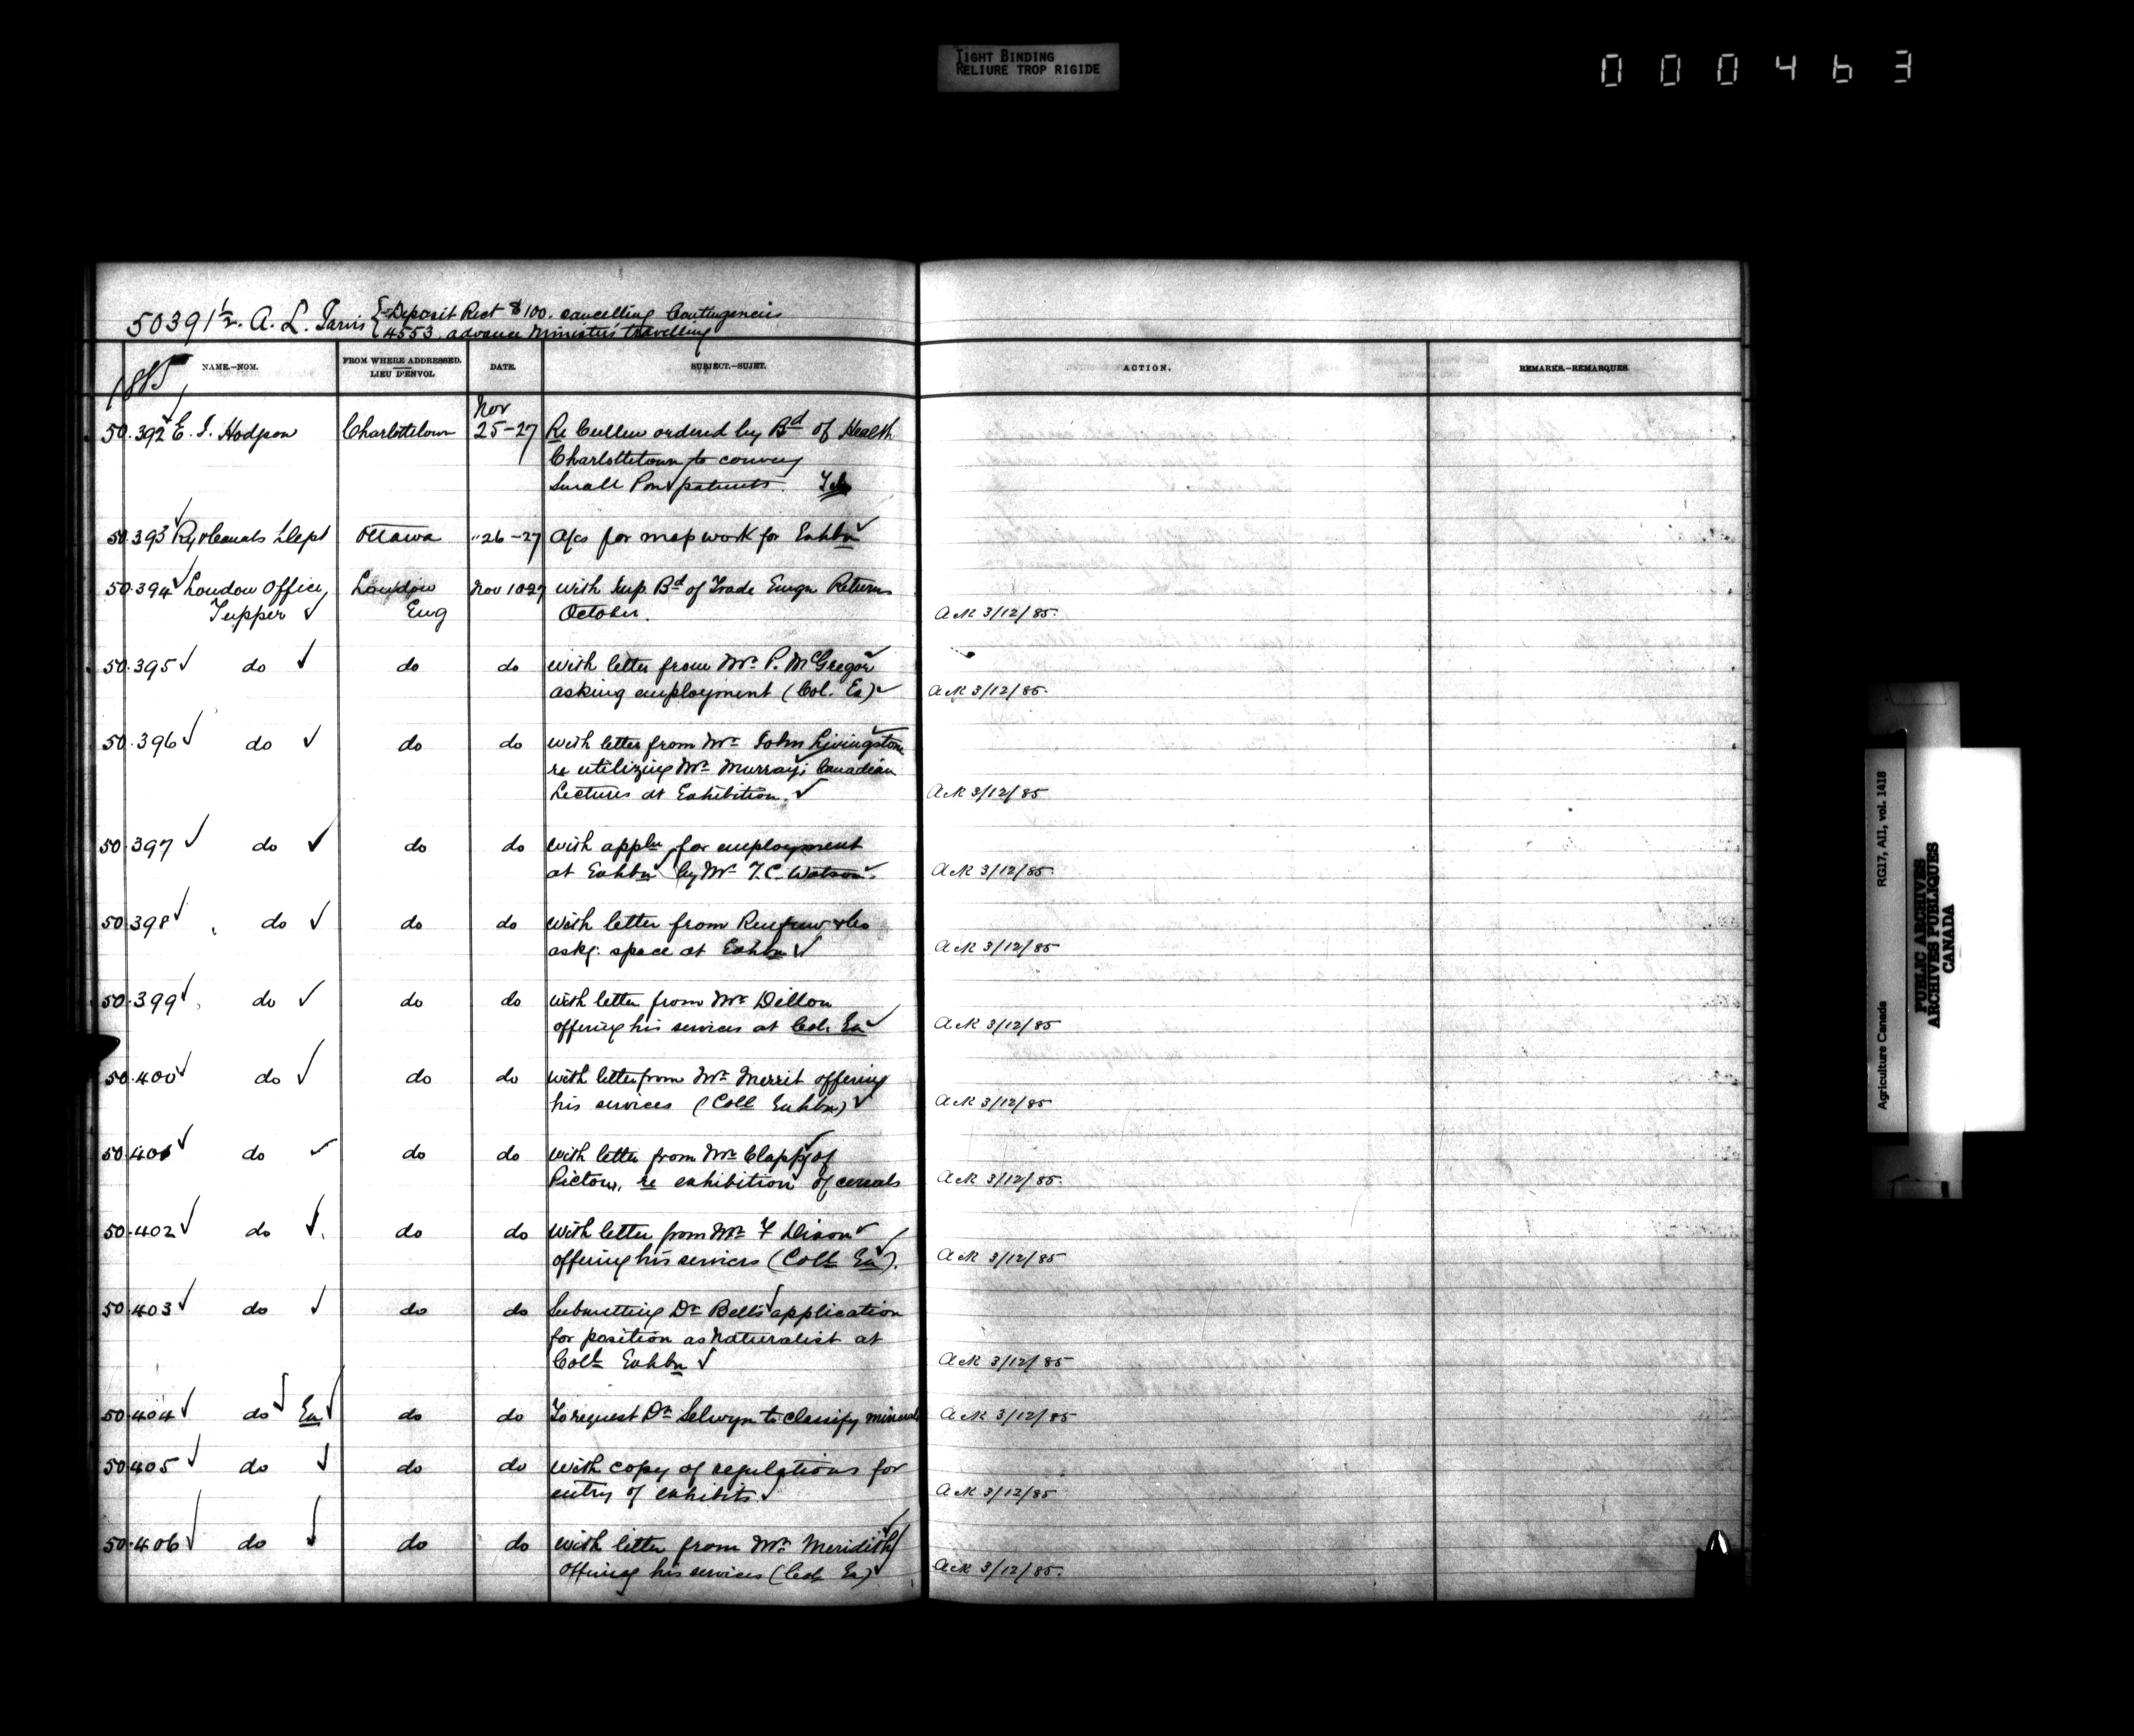 TIGHT BINDING
RELIURE TROP RIGIDE
000463
50391½. A. L. Jarvis { Deposit Rect $100. cancelling Contingencies
{ 4553. advance Minister's travelling
1885
NAME.-NOM. FROM WHERE ADDRESSED. LIEU D'ENVOI. DATE. SUBJECT.-SUJET. ACTION. REMARKS.-REMARQUES
Nov
50.392 E. J. Hodgson Charlottetown 25-27 Re Cullen ordered by Bd of Health
Charlottetown to convey
Small Pox patients. Tel
50.393 Ry & Canals Dept Ottawa "26-27 A/cs for map work for Exhbn
50.394 London Office, London Nov 10-27 with Sup. Bd of Trade Emgn Returns
Tupper Eng October. Ack 3/12/85.
50.395 do do do with letter from Mr. P. McGregor
asking employment (Col. Ex) Ack 3/12/85.
50.396 do do do with letter from Mr. John Livingstone
re utilizing Mr. Murray's Canadian
Lectures at Exhibition. Ack 3/12/85
50.397 do do do with appln for employment
at Exhbn by Mr. T. C. Watson. Ack 3/12/85
50.398 do do do with letter from Renfrew & Co
askg. space at Exhbn Ack 3/12/85
50.399 do do do with letter from Mr. Dillon
offering his services at Col. Ex Ack 3/12/85
50.400 do do do with letter from Mr. Merrit offering
his services (Coll Exhbn) Ack 3/12/85
50.401 do do do with letter from Mr. Clapp, of
Pictou, re exhibition of cereals Ack 3/12/85.
50.402 do do do with letter from Mr. F Dixon
offering his services (Coll Ex). Ack 3/12/85
50.403 do do do Submitting Dr. Bell's application
for position as Naturalist at
Coll Exhbn Ack 3/12/85
50.404 do Ex do do To request Dr. Selwyn to classify minerals Ack 3/12/85
50.405 do do do with copy of regulations for
entry of exhibits Ack 3/12/85
50.406 do do do with letter from Mr. Meridith
offering his services (Col Ex) Ack 3/12/85.
Agriculture Canada RG17, AII, vol. 1418
PUBLIC ARCHIVES
ARCHIVES PUBLIQUES
CANADA